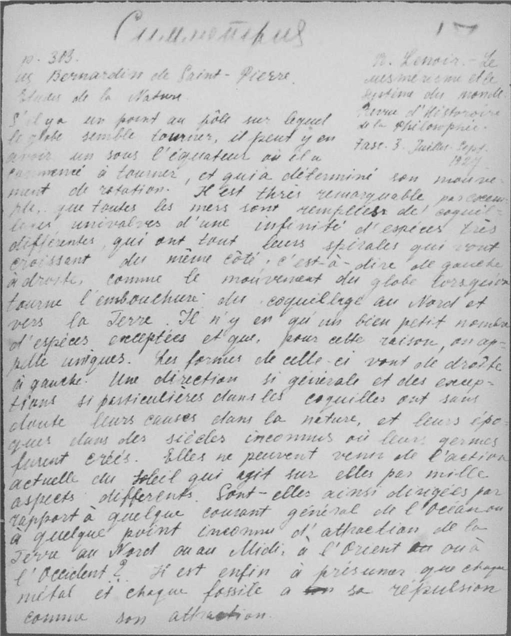 Симметрия
17
p. 313.
из Bernardin de Saint-Pierre.
Etudes de la Nature
R. Lenoir. - Le
mesmerisme et le
système du monde
Revue d'histoire
de la Philosophie.
fasc. 3. Juillet-Sept.
1927.
S'il y a un point au pôle sur lequel
le globe semble tourner, il peut y en
avoir un sous l'équateur où il a
commencé à tourner, et qui a déterminé son mouve-
ment de rotation. Il est thrés remarquable, par exem-
ple, que toutes les mers sont remplies de coquil-
lages univalves d'une infinité d'espèces très
différentes, qui ont tout leurs spirales qui vont
croissant du même côté, c'est-à-dire de gauche
à droite, comme le mouvement du globe lorsqu'on
tourne l'embouchure du coquillage au Nord et
vers la Terre. Il n'y en qu'un bien petit nombre
d'espèces exceptées et que, pour cette raison, on ap-
pelle uniques. Les formes de celle-ci vont de droite
à gauche. Une direction si générale et des excep-
tions si particulières dans les coquilles ont sans
doute leurs causes dans la nature, et leurs épo-
ques dans des siècles inconnus où leurs germes
furent créés. Elles ne peuvent venir de l'action
actuelle du soleil qui agit sur elles par mille
aspects differents. Sont-elles ainsi dirigées par
rapport à quelque courant général de l'Océan ou
à quelque point inconnu d'attraction de la
Terre au Nord ou au Midi, à l'Orient ou à
l'Occident? Il est enfin à présumer que chaque
métal et chaque fossile a sa répulsion
comme son attraction.